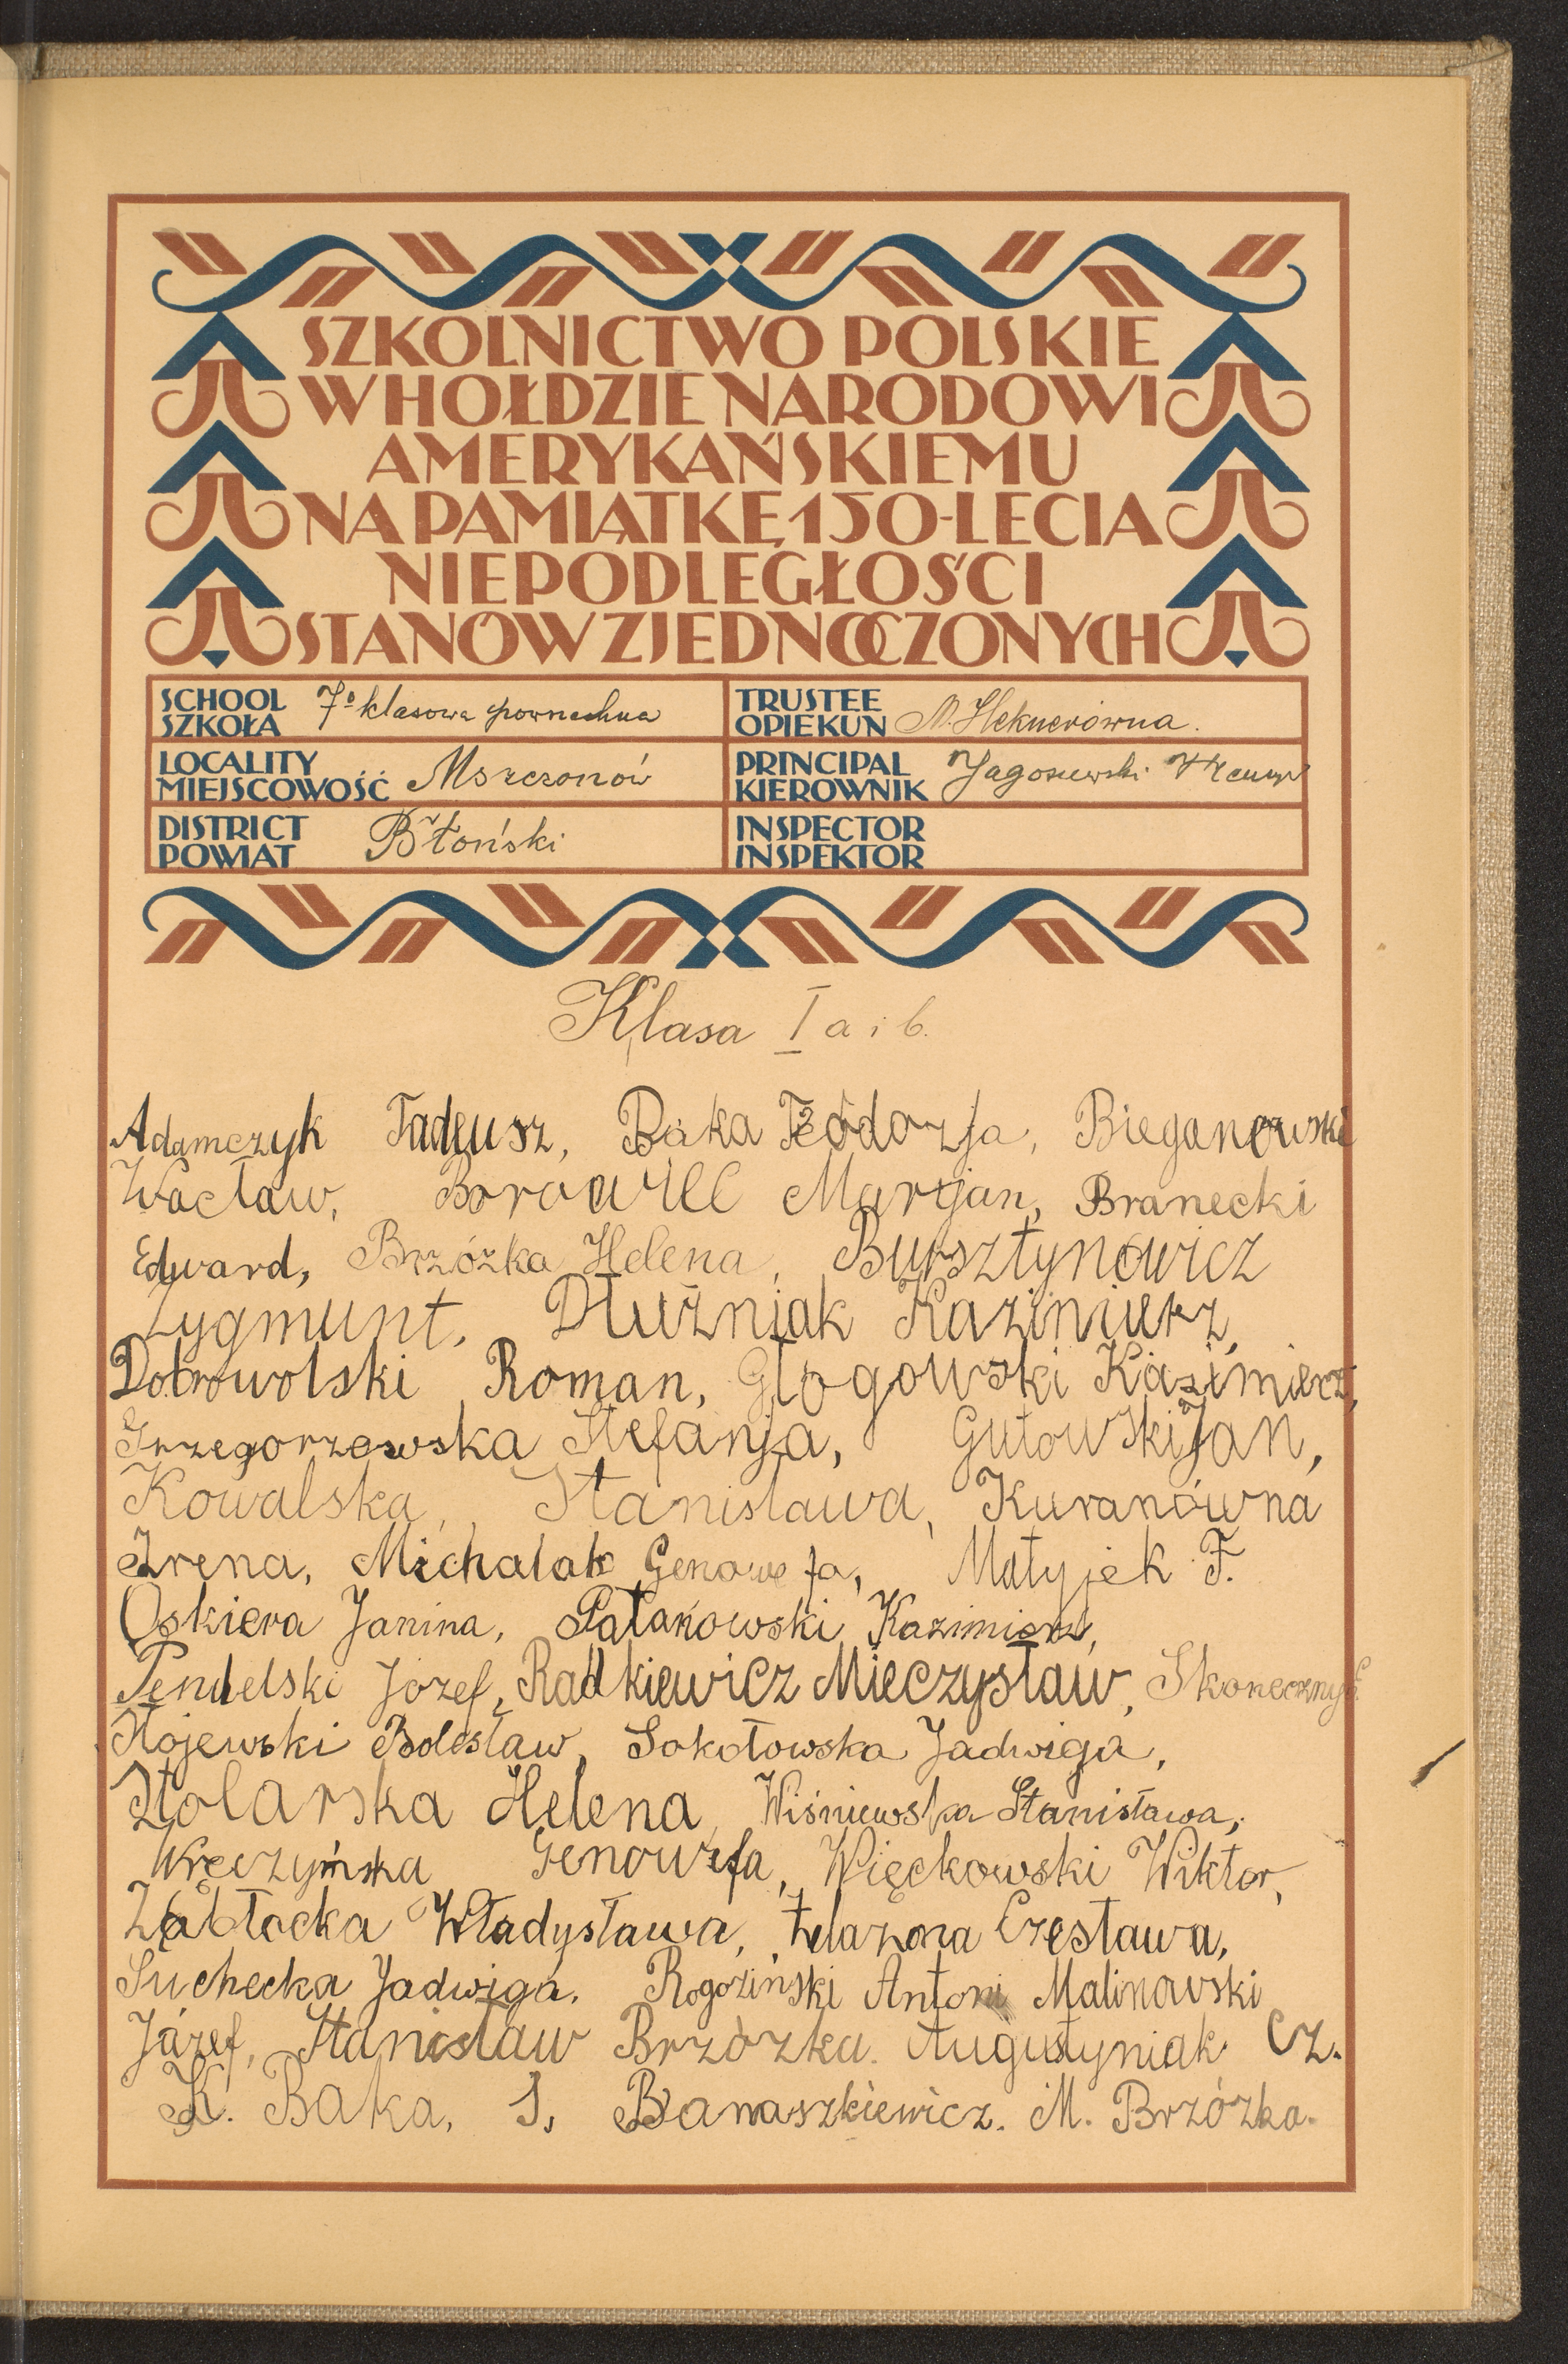 SZKOLNICTWO POLSKIE
W HOŁDZIE NARODOWI
AMERYKAŃSKIEMU
NA PAMIĄTKĘ 150-LECIA
NIEPODLEGŁOŚCI
STANÓW ZJEDNOCZONYCH
SCHOOL
SZKOŁA 7o klasowa powszechna
TRUSTEE
OPIEKUN M. Heknerówna.
LOCALITY
MIEJSCOWOŚĆ Mszczonów
PRINCIPAL
KIEROWNIK
DISTRICT
POWIAT Błoński
INSPECTOR
INSPEKTOR
Klasa I a i b.
Adamczyk Tadeusz, Bąka Teodozja, Bieganowski
Wacław, Borowiec Marjan, Branecki
Edward, Brzózka Helena, Bursztynowicz
Zygmunt, Dłużniak Kazimierz,
Dobrowolski Roman, Głogowski Kazimierz,
Grzegorzewska Stefanja, Gutowski Jan,
Kowalska, Stanisława, Kuranówna
Irena, Michalak Genowefa, Matyjek F.
Oskiera Janina, Pałakowski Kazimierz,
Pendelski Józef, Radkiewicz Mieczysław, Skoneczny
Stojewski Bolesław, Sokołowska Jadwiga,
Stolarska Helena, Wiśniewska Stanisława,
Wręczyńska Genowefa, Więckowski Wiktor,
Zabłocka Władysława, Żelazona Czesława,
Suchecka Jadwiga. Rogoziński Antoni Malinowski
Józef, Stanisław Brzózka. Augustyniak Cz.
K. Bąka, J. Banaszkiewicz. M. Brzózka.